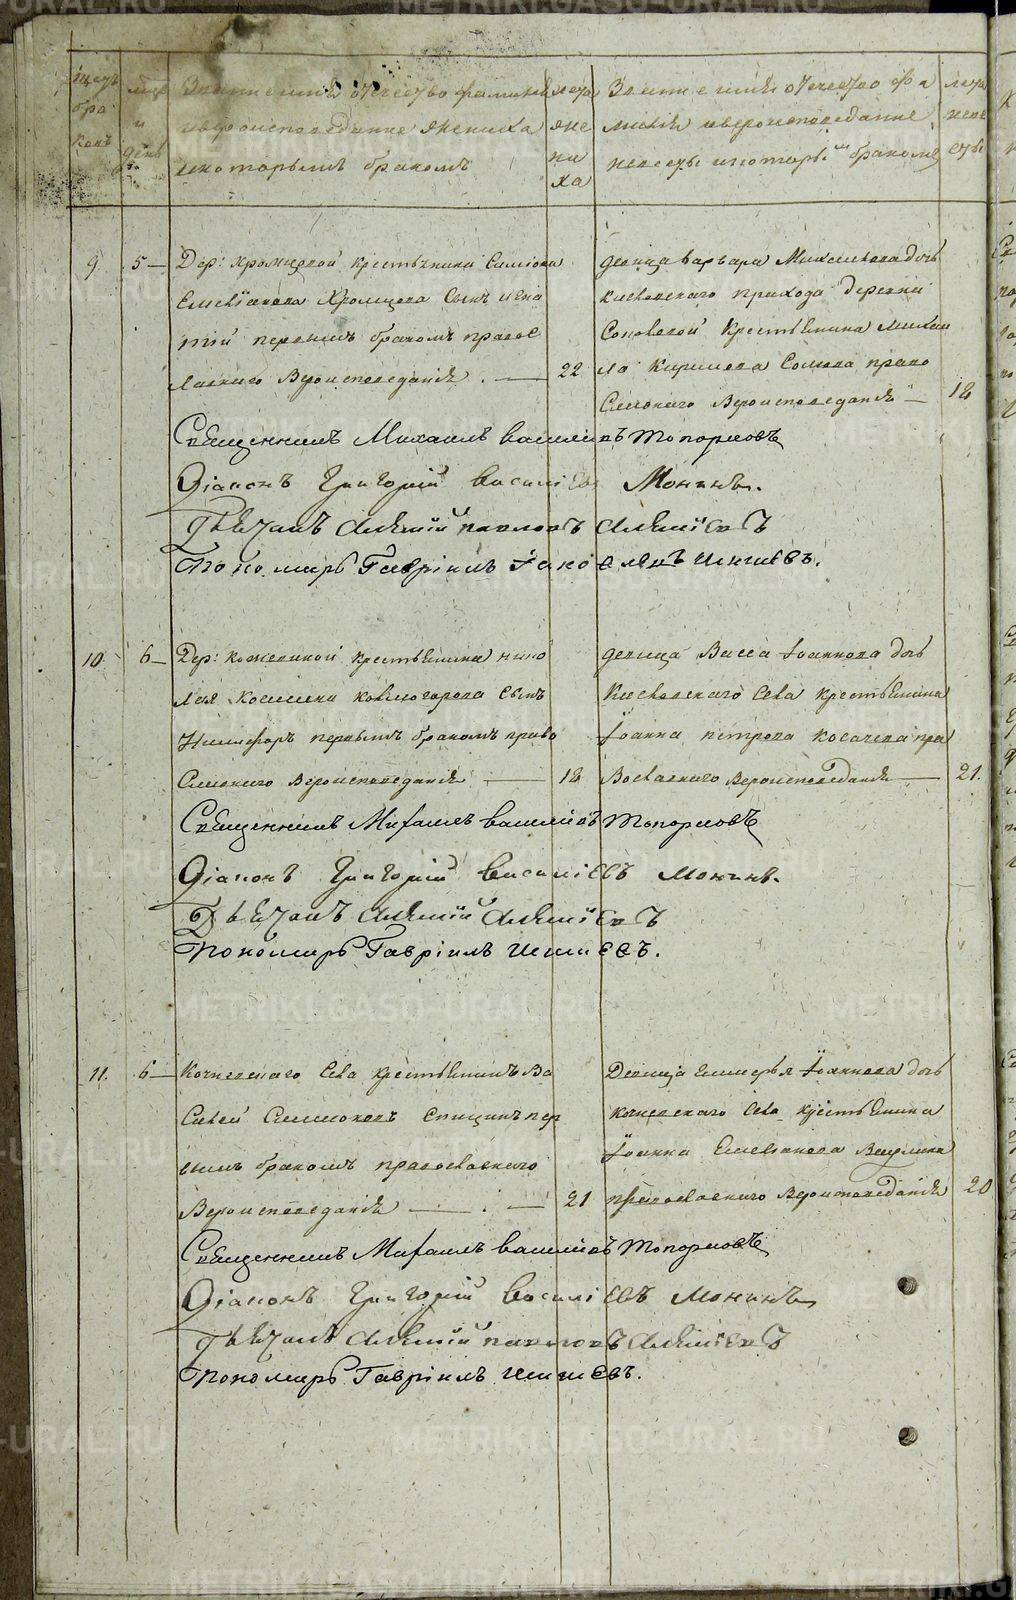 Счетъ браковъ
мцъ и день
Званіе имя отчество фамилия
и вероисповедание жениха
и которымъ бракомъ
лета жениха
Званіе имя отчество фа
милия и вероисповедание
невесты и которымъ бракомъ
лета невесты
9. 5 — Дер: Хромцовой крестьянина Симіона
Хромцова сынъ Игна
тій первымъ бракомъ правос
лавнаго Вероисповеданія . — 22
девица Варвара Михаилова дочь
прихода деревни
крестьянина Михаи
ла Кирилова право
славнаго Вероисповеданія — 18
Священникъ Михаилъ Василиевъ Топорковъ
Діаконъ Григорій Василіевъ Монинъ.
Дьячокъ Алексій Павловъ Алексіевъ
Пономарь Гавріилъ Іаковлевъ Игнатіевъ.
10. 6 — Дер: Кожевиной крестьянина Нико
лая сынъ
Никифоръ первымъ бракомъ право
славнаго Вероисповеданія — 18
девица Васса Іоаннова дочь
Села крестьянина
Іоанна Петрова Косачева пра
вославнаго Вероисповеданія — 21.
Священникъ Михаилъ Василиевъ Топорковъ
Діаконъ Григорій Василіевъ Монинъ.
Дьячокъ Алексій Алексіевъ
Пономарь Гавріилъ Игнатіевъ.
11. 6 — Кочневскаго Села крестьянинъ Ва
силей Симионовъ Спицинъ пер
вымъ бракомъ православнаго
Вероисповеданія — . — 21
Девица Гликерья Іоаннова дочь
Кочневскаго Села крестьянина
Іоанна
православнаго Вероисповеданія 20
Священникъ Михаилъ Василиевъ Топорковъ
Діаконъ Григорій Василіевъ Монинъ
Дьячокъ Алексій Павловъ Алексіевъ
Пономарь Гавріилъ Игнатіевъ.
METRIKI.GASO-URAL.RU